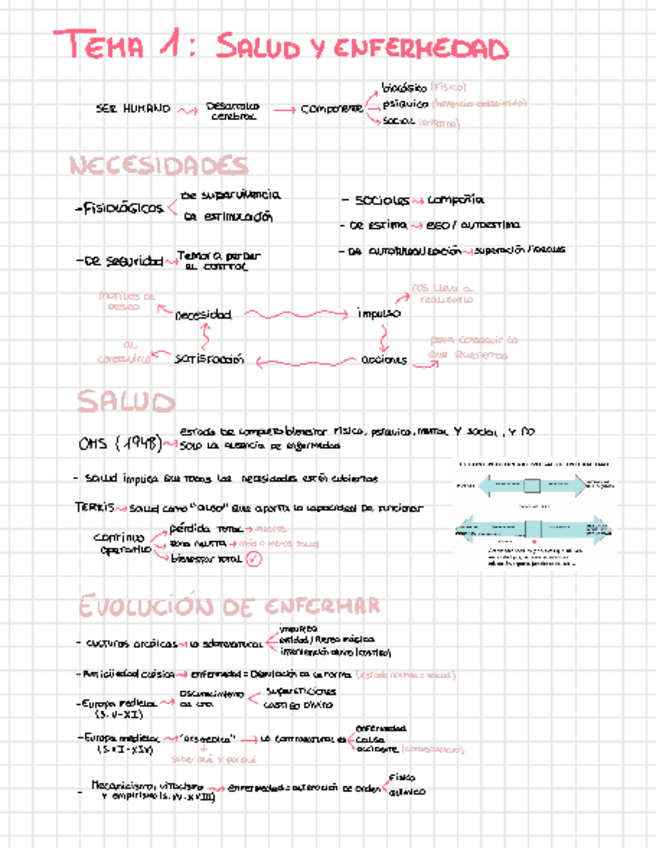 TEMA 1: SALUD Y ENFERMEDAD
biológico (Físico)
SER HUMANO → Desarrollo cerebral → componente
psíquico (herencia adquirida)
social (entorno)
NECESIDADES
- Fisiológicas
De supervivencia
De estimulación
- De seguridad → Temor a perder el control
- Sociales → compañía
- De estima → ego / autoestima
- De autorrealización → superación / ideales
motivos de deseo
necesidad
impulso
nos lleva a realizarlo
al conseguirlo
satisfacción
acciones
para conseguir lo que queremos
SALUD
OMS (1948) → estado de completo bienestar físico, psíquico, mental y social, y no
solo la ausencia de enfermedad
- Salud implica que todas las necesidades estén cubiertas
TERRIS → Salud como "algo" que aporta la capacidad de funcionar
continuo operativo
pérdida total → muerte
zona neutra → más o menos salud
bienestar total
EVOLUCIÓN DE ENFERMAR
- culturas arcaicas → lo sobrenatural
impureza
entidad / fuerza mágica
intervención divina (castigo)
- Antigüedad clásica → enfermedad = Desviación de la norma (estado normal = salud)
- Europa medieval (S. V-XI) → oscurecimiento
supersticiones
castigo divino
- Europa medieval → "ars medica" → lo contranatural es
enfermedad
causa
accidente (consecuencia)
saber qué y por qué
- Mecanicismo, vitalismo y empirismo → enfermedad = alteración de orden
Físico
químico